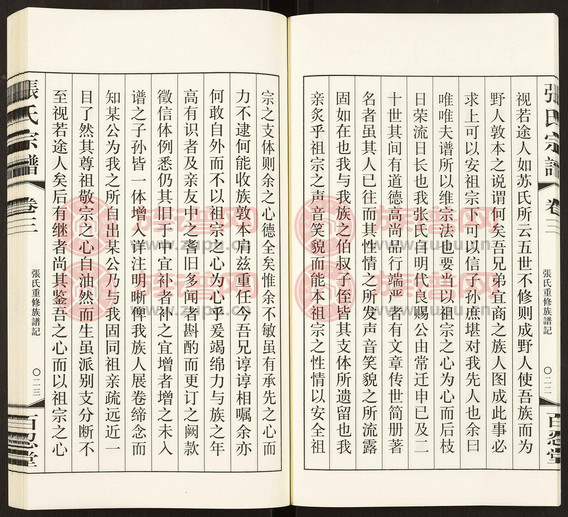 視若途人如苏氏所云五世不修则成野人使吾族而为
野人敦本之说谓何矣吾兄弟宜商之族人图成此事必
求上可以安祖宗下可以信子孙庶堪对我先人也余曰
唯唯夫谱所以维宗法也要当以祖宗之心为心而后枝
日荣流日长也我张氏自明代良赐公由常迁申已及二
十世其间有道德高尚品行端严者有文章传世简册著
名者虽其人已往而其性情之所发声音笑貌之所流露
固如在也我与我族之伯叔子侄皆其支体所遗留也我
亲炙乎祖宗之声音笑貌而能本祖宗之性情以安全祖
張氏宗譜
卷三
張氏重修族譜記
〇二二二
百忍堂
宗之支体则余之心德全矣惟余不敏虽有承先之心而
力不逮何能收族敦本肩兹重任今吾兄谆谆相嘱余亦
何敢自外而不以祖宗之心为心乎爰竭绵力与族之年
高有识者及亲友中之耆旧多闻者斟酌而更订之阙款
徵信体例悉仍其旧于中宜补者补之宜增者增之未入
谱之子孙皆一体增入详注明晰俾我族人展卷缔念而
知某公为我之所自出某公乃与我固同祖亲疏远近一
目了然其尊祖敬宗之心自油然而生虽派别支分断不
至视若途人矣后有继者尚其鉴吾之心而以祖宗之心
張氏宗譜
卷三
張氏重修族譜記
〇二二三
百忍堂
族谱网
www.zupu.cn
族谱网
www.zupu.cn
族谱网
www.zupu.cn
族谱网
www.zupu.cn